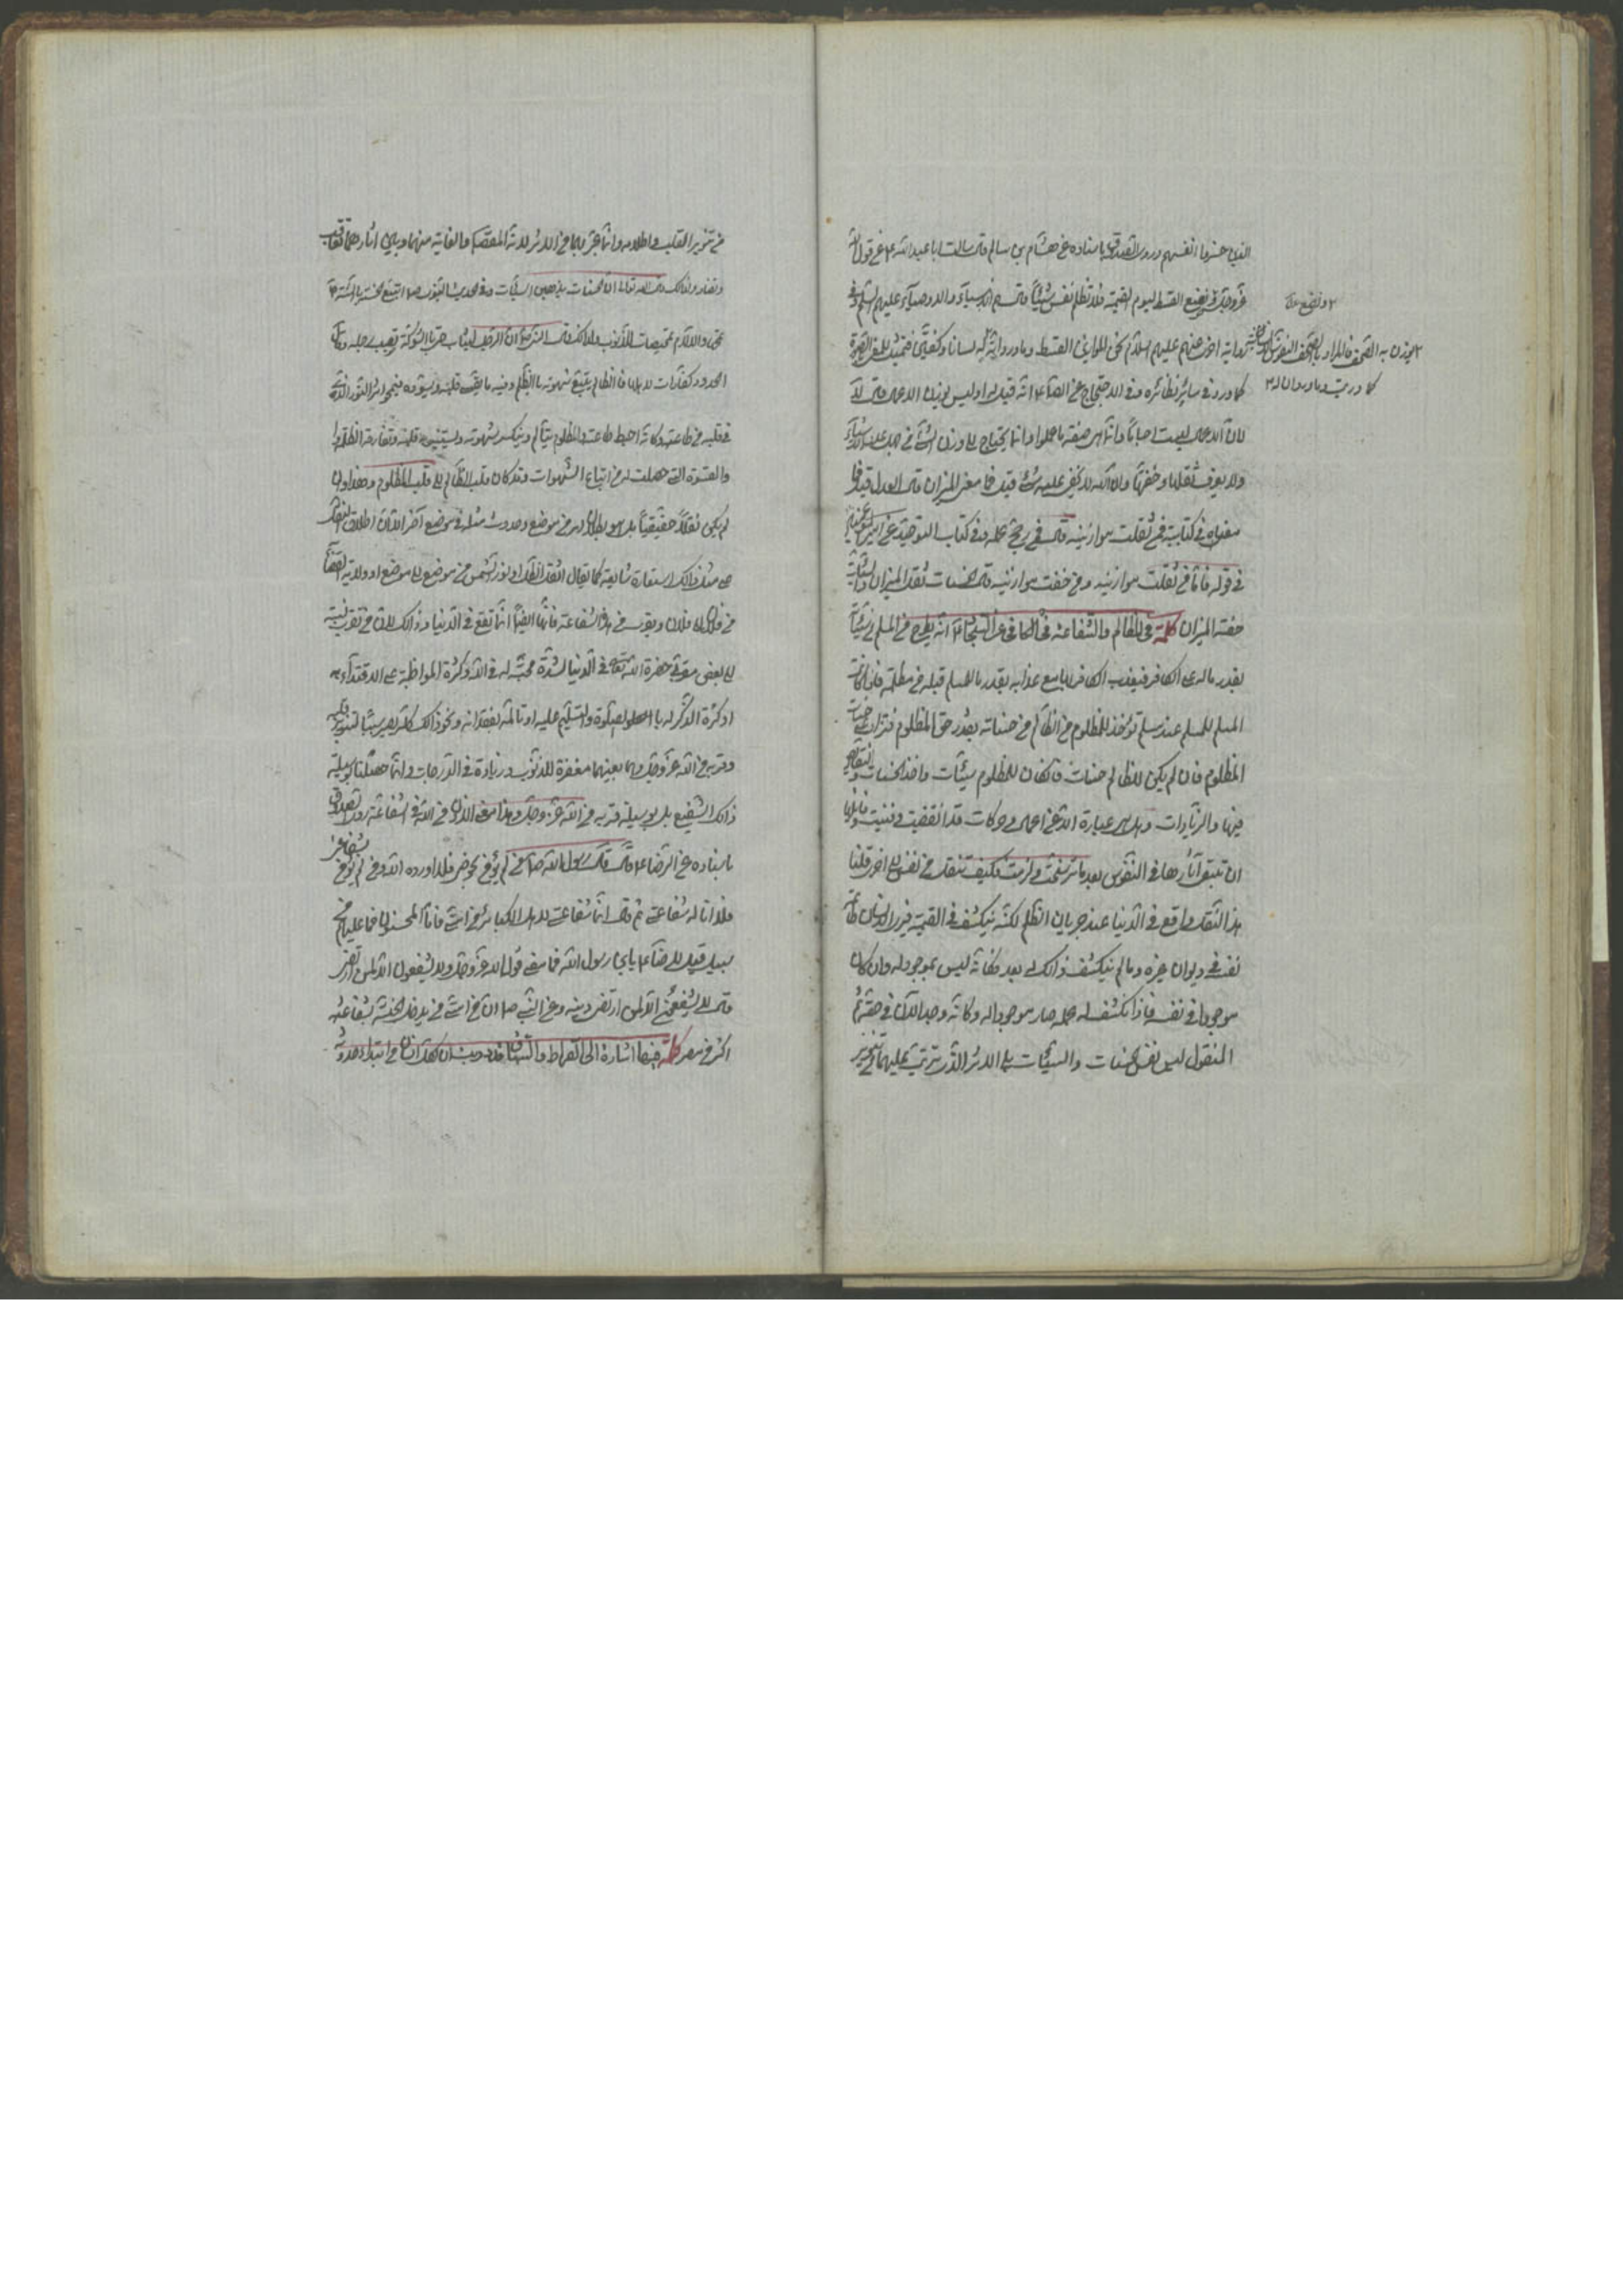 الذين خسروا انفسهم وروى الصدوق باسناده عن هشام بن سالم قال سالت ابا عبد الله ع عن قول الله
عز وجل ونضع القسط ليوم القيمة فلا تظلم نفس شيئا قال هم الانبياء والاوصياء عليهم السلم وفي
رواية اخرى عنهم عليهم السلام نحن الموازين القسط
كما ورد في سائر نظائره وفي الاحتجاج عن الصادق ع انه قيل له اوليس يوزن الاعمال قال لا
لان الاعمال ليست اجساما وانما هي صفة ما عملوا وانما يحتاج الى وزن الشئ من جهل عدد الاشياء
ولا يعرف ثقلها وخفتها وان الله لا يخفى عليه شئ قيل فما معنى الميزان قال العدل قيل فما
معناه في كتابه فمن ثقلت موازينه قال فمن رجح عمله وفي كتاب التوحيد عن امير المؤمنين
في قوله فاما من ثقلت موازينه ومن خفت موازينه قال الحسنات ثقل الميزان والسيئات
خفة الميزان كلمة في المظالم والشفاعة في الكافي عن السجاد ع انه يطرح عن المسلم من سيئاته
بقدر ما له على الكافر فيعذب الكافر بها مع عذابه بقدر ما للمسلم قبله من مظلمة فان كانت
المسلم للمسلم عند مسلم تؤخذ للمظلوم من الظالم من حسناته بقدر حق المظلوم فتزاد على حسنات
المظلوم فان لم يكن للظالم حسنات فان كان للمظلوم سيئات واخذ الحسنات والتقاص
فيها والزيادات وهل هي عبارة الا عن اعمال وحركات قد انقضت وفنيت وما فائدة
ان تبقى آثارها في النفوس بعد ما ترسخت ولزمت فكيف تنقل من نفس الى اخرى قلنا
هذا النقل واقع في الدنيا عند جريان الظلم لكنه ينكشف في القيمة فيرى الانسان طاعة
نفسه في ديوان غيره وما لم ينكشف ذلك له بعد فكانه ليس بموجود له وان كان
موجودا في نفسه فاذا انكشف له علمه صار موجودا له وكانه وجد الآن في حقه ثم
المنقول ليس نفس الحسنات والسيئات بل الاثر الذي يترتب عليهما من تنوير
ونضع الموازين
يوزن به الصحف فالمراد بالصحف النفوس الانسانية
من تنوير القلب واظلامه وانما عبر بها عن الاثر لانه المقصد والغاية منها وبين آثارهما تعاقب
وتضاد ولذلك قال الله تعالى ان الحسنات يذهبن السيئات وفي الحديث النبوي ص اتبع الحسنة السيئة
تمحها والآلام تمحيصات للذنوب ولذلك قال النبي ص ان الرجل ليثاب حتى بالشوكة تصيب رجله وقال
الحدود كفارات لاهلها فالظالم يتبع شهوته بالظلم وفيه ما يقسى قلبه ويسوده فيمحو اثر النور الذي
في قلبه من طاعته فكانه احبط طاعته والمظلوم يتالم وينكسر شهوته ويستنير قلبه وتفارقه الظلمة
والقسوة التي حصلت له من اتباع الشهوات وقد كان قلب الظالم الى قلب المظلوم وهذا وان
لم يكن نقلا حقيقيا بل هو بطلان له من موضع وحدوث مثله في موضع آخر الا ان اطلاق النقل
على مثل ذلك استعارة شايعة كما يقال انتقل الظل او نور الشمس من موضع الى موضع او ولاية القضاء
من فلان الى فلان وبقرب من هذا الشفاعة فانها ايضا انما تقع في الدنيا وذلك لان من تقرب نيته
الى بعض مقربي حضرة الله تعالى في الدنيا لشدة محبته له في الله وكثرة المواظبة على الاقتداء به
او كثرة الذكر له بالصلوة والتسليم عليه او تالمه لفقدانه ونحو ذلك كله يصير سببا لتنوير قلبه
وقربه من الله عز وجل وهما بعينهما مغفرة للذنوب وزيادة في الدرجات وانما حصلتا بوسيلة
ذلك الشفيع بل بوسيلة قربه من الله عز وجل وهذا معنى الاذن من الله في الشفاعة روى الصدوق
باسناده عن الرضا ع قال قال رسول الله ص من لم يؤمن بحوضي فلا اورده الله ومن لم يؤمن بشفاعتي
فلا اناله شفاعتي ثم قال انما شفاعتي لاهل الكبائر من امتي فاما المحسنون فما عليهم من
سبيل قيل للرضا ع يابن رسول الله فما معنى قول الله عز وجل ولا يشفعون الا لمن ارتضى
قال لا يشفعون الا لمن ارتضى دينه وعن النبي ص ان من امتي من يدخل الجنة بشفاعته
اكثر من مضر كلمة فيها اشارة الى الصراط